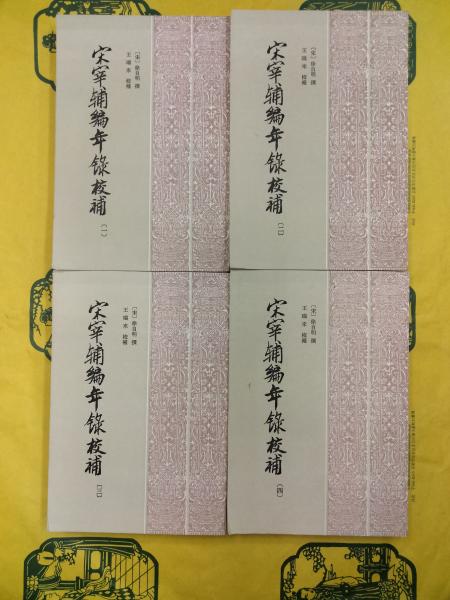 宋宰辅编年录校补
〔一〕
〔宋〕徐自明 撰
王瑞来 校补
宋宰辅编年录校补
〔二〕
〔宋〕徐自明 撰
王瑞来 校补
宋宰辅编年录校补
〔三〕
〔宋〕徐自明 撰
王瑞来 校补
宋宰辅编年录校补
〔四〕
〔宋〕徐自明 撰
王瑞来 校补